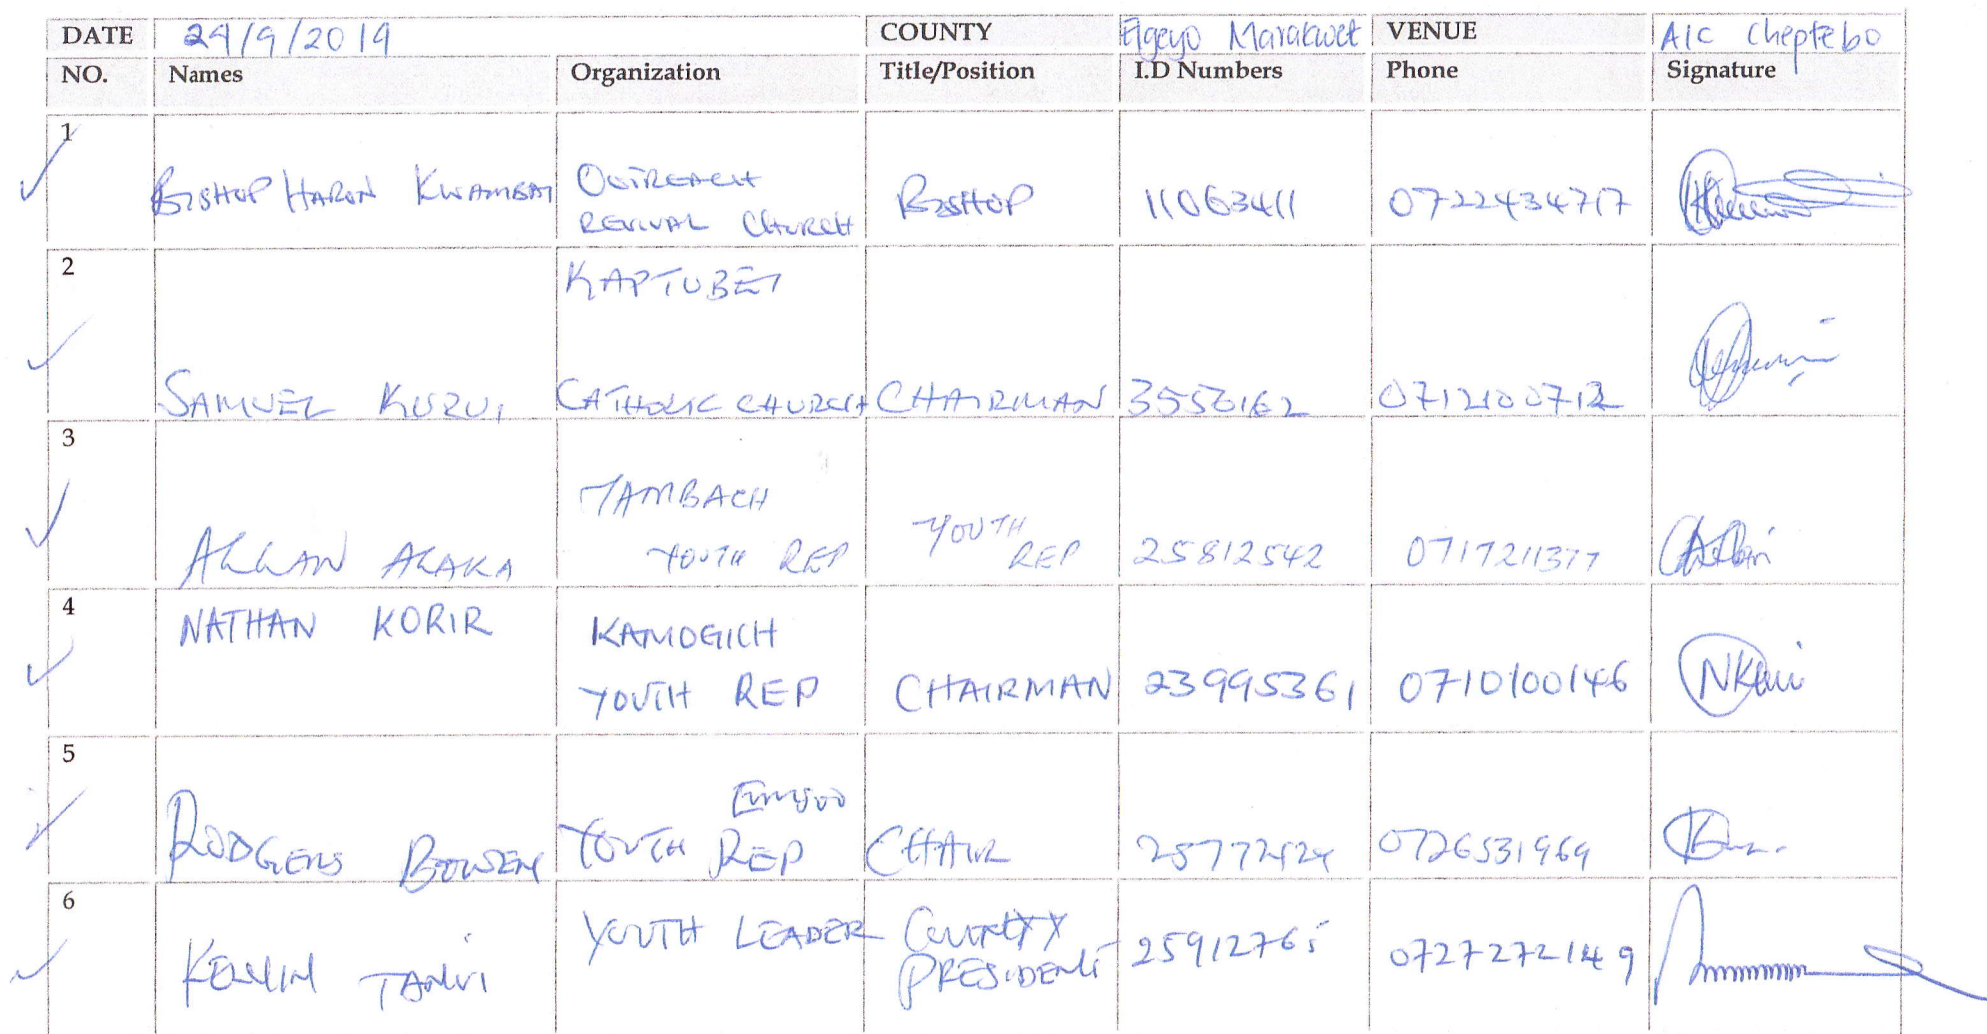 DATE 24/9/2019 COUNTY Elgeyo Marakwet VENUE AIC Cheptebo
NO. Names Organization Title/Position I.D Numbers Phone Signature
1 BISHOP HARON KWAMBAI OUTREACH REVIVAL CHURCH BISHOP 11063411 0722434717
2 SAMUEL KAPTUBET CATHOLIC CHURCH CHAIRMAN 3553162 0712100712
3 ALLAN ALAKA TAMBACH YOUTH REP YOUTH REP 25812542 0717211377
4 NATHAN KORIR KAMOGICH YOUTH REP CHAIRMAN 23995361 0710100146
5 RODGERS BOWEN Emsoo YOUTH REP CHAIR 0726531969
6 KELVIN TANUI YOUTH LEADER COUNTY PRESIDENT 25912765 0727272149